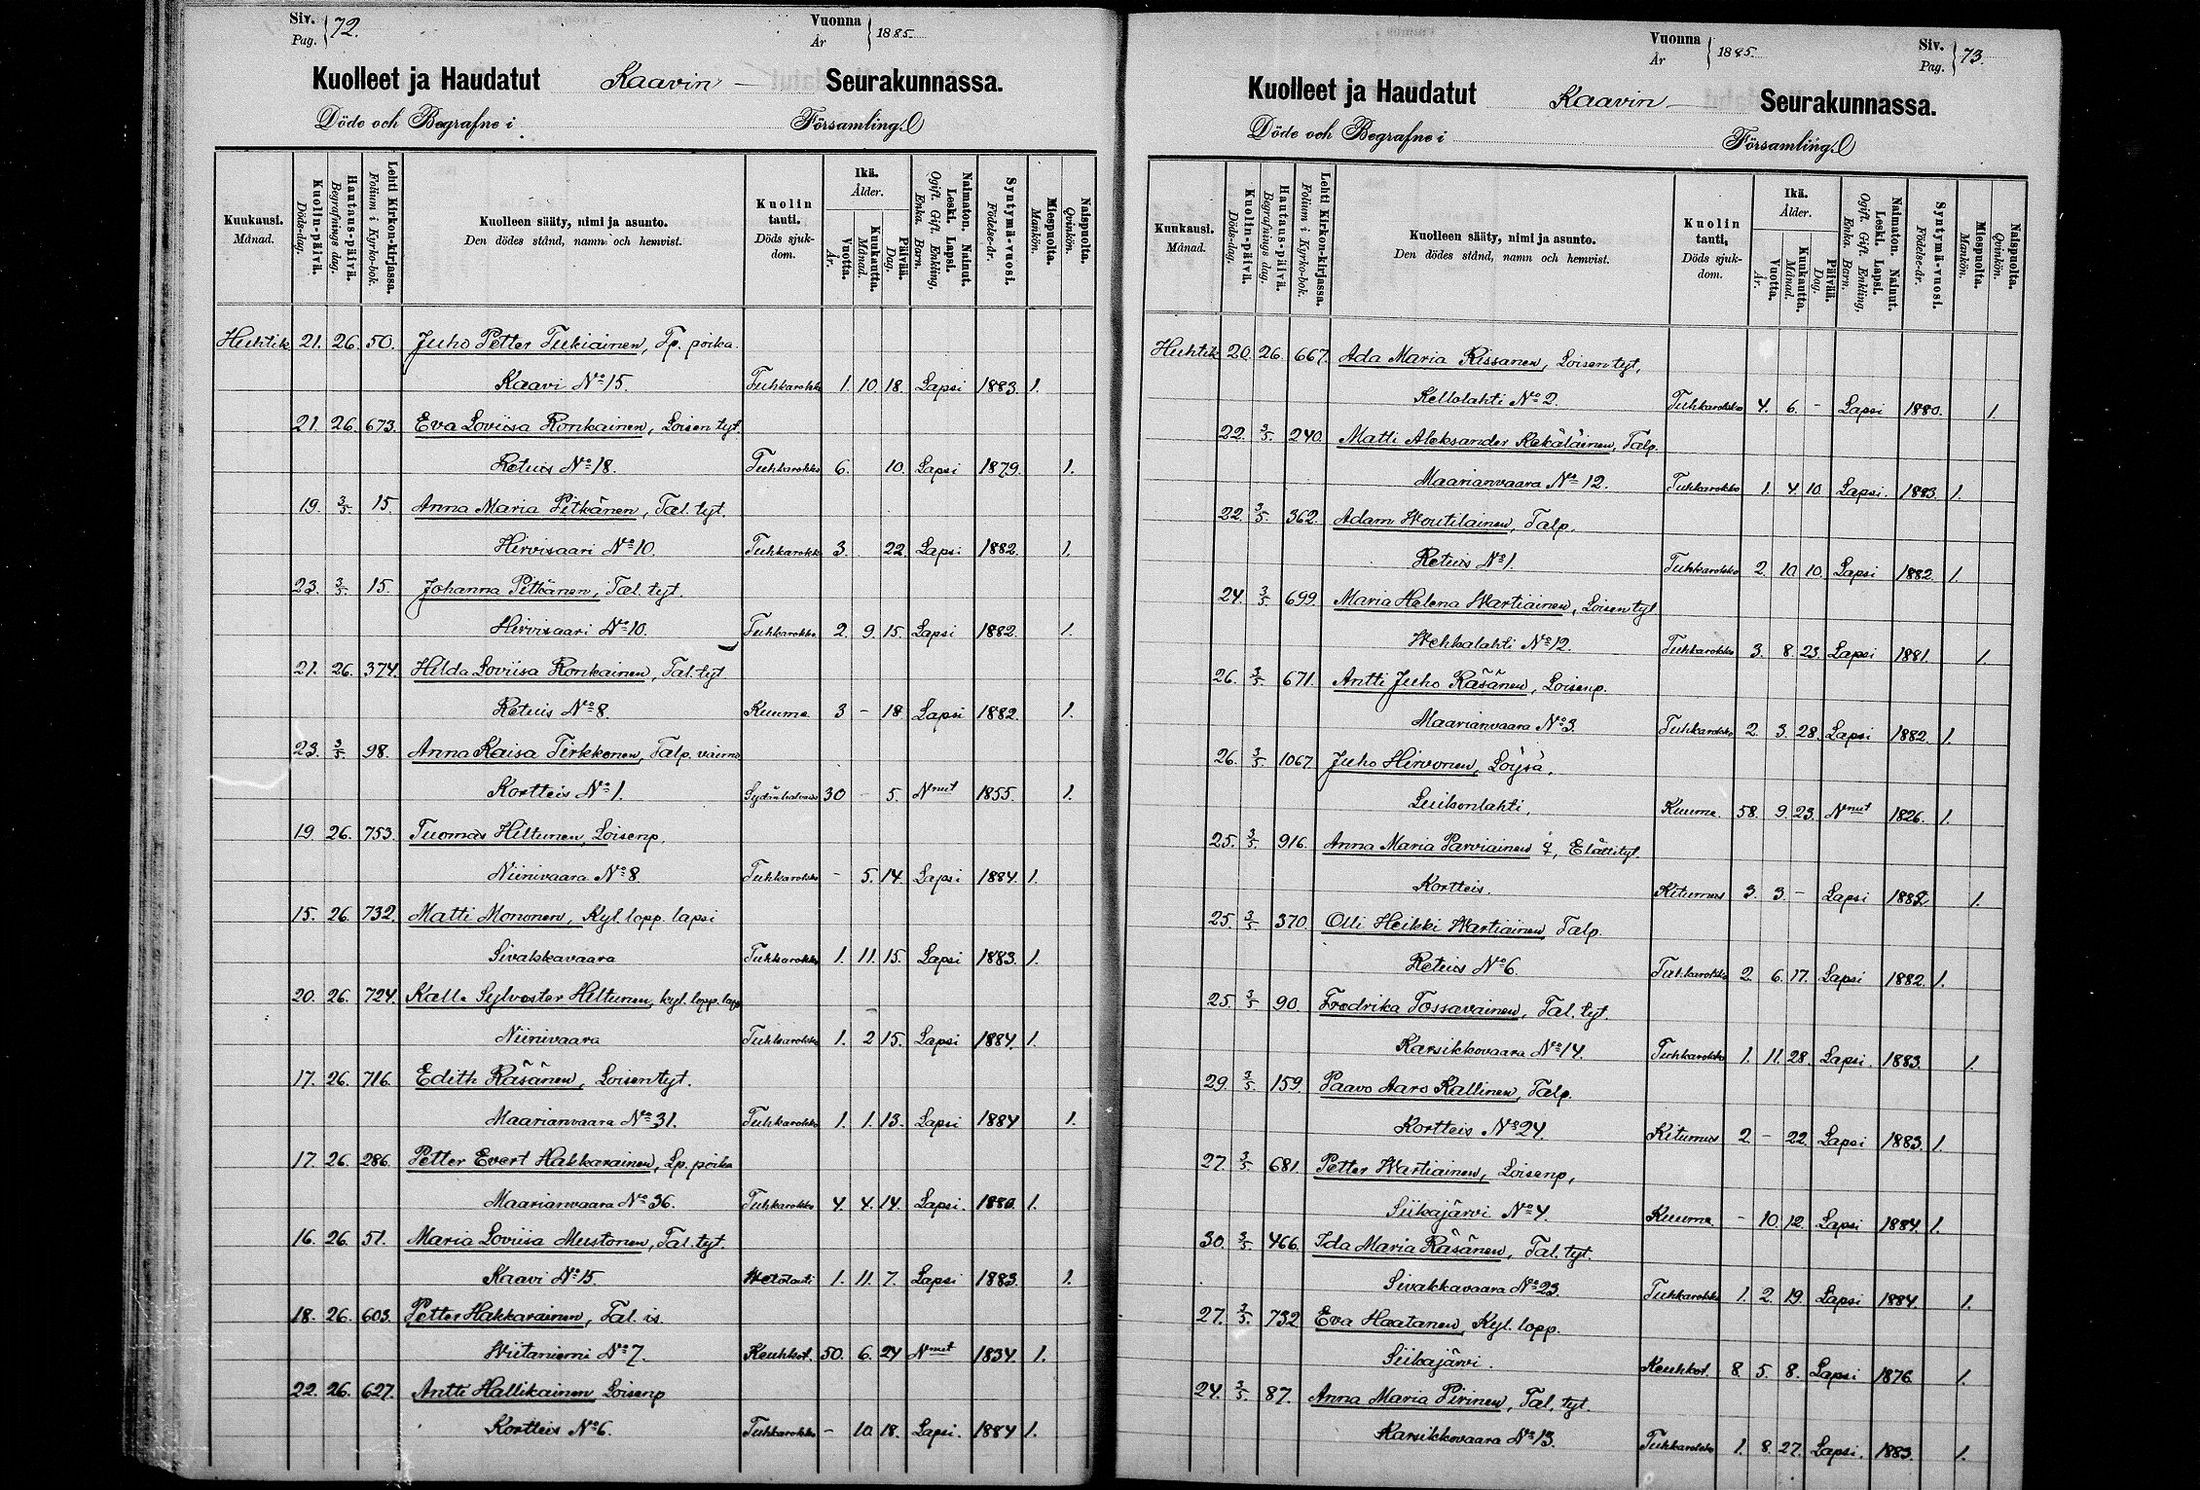 Siv. Pag. 72.
Vuonna År 1885.
Kuolleet ja Haudatut Kaavin Seurakunnassa.
Döde och Begrafne i Församling.
Kuukausi. Månad.
Kuolin-päivä. Döds-dag.
Hautaus-päivä. Begrafnings dag.
Lehti Kirkon-kirjassa. Folium i Kyrko-bok.
Kuolleen sääty, nimi ja asunto. Den dödes stånd, namn och hemvist.
Kuolin tauti. Döds sjuk-dom.
Ikä. Ålder.
Vuotta. År.
Kuukautta. Månad.
Päivää. Dag.
Naimaton. Nainut. Leski. Lapsi. Ogift. Gift. Enkling, Enka. Barn.
Syntymä-vuosi. Födelse-år.
Miespuolta. Mankön.
Naispuolta. Qvinkön.
Huhtik. 21. 26. 50. Juho Petter Tukiainen, Tp. poika.
Kaavi No 15. Tuhkarokko 1. 10. 18. Lapsi 1883. 1.
21. 26. 673. Eva Loviisa Ronkainen, Loisen tyt.
Retuis No 18. Tuhkarokko 6. 10. Lapsi 1879. 1.
19. 3/5. 15. Anna Maria Pitkänen, Tal. tyt.
Hirvisaari No 10. Tuhkarokko 3. 22. Lapsi 1882. 1.
23. 3/5. 15. Johanna Pitkänen, Tal. tyt.
Hirvisaari No 10. Tuhkarokko 2. 9. 15. Lapsi 1882. 1.
21. 26. 374. Hilda Loviisa Ronkainen, Tal. tyt
Retuis No 8. Kuume 3 - 18 Lapsi 1882. 1.
23. 3/5. 98. Anna Kaisa Tirkkonen, Talp. vaimo
Kortteis No 1. 30 - 5. Nnut 1855. 1.
19. 26. 753. Tuomas Hiltunen, Loisenp.
Niinivaara No 8. Tuhkarokko - 5. 14. Lapsi 1884. 1.
15. 26. 732. Matti Mononen, Kyl. lopp. lapsi
Sivakkavaara Tuhkarokko 1. 11. 15. Lapsi 1883. 1.
20. 26. 724. Kalle Sylvester Hiltunen, kyl. lopp. laps
Niinivaara Tuhkarokko 1. 2 15. Lapsi 1884. 1.
17. 26. 716. Edith Räsänen, Loisentyt.
Maarianvaara No 31. Tuhkarokko 1. 1. 13. Lapsi 1884 1.
17. 26. 286. Petter Evert Hakkarainen, Lp. poika
Maarianvaara No 36. Tuhkarokko 4. 4. 14. Lapsi. 1880. 1.
16. 26. 51. Maria Loviisa Mustonen, Tal. tyt.
Kaavi No 15. Wetotauti 1. 11. 7. Lapsi 1883. 1.
18. 26. 603. Petter Hakkarainen, Tal. is.
Wiitaniemi No 7. Keuhkot. 50. 6. 24 Nnut 1834. 1.
22. 26. 627. Antti Hallikainen Loisenp
Kortteis No 6. Tuhkarokko - 10 18. Lapsi. 1884 1.
Vuonna År 1885.
Siv. Pag. 73.
Kuolleet ja Haudatut Kaavin Seurakunnassa.
Döde och Begrafne i Församling.
Kuukausi. Månad.
Kuolin-päivä. Döds-dag.
Hautaus-päivä. Begrafnings dag.
Lehti Kirkon-kirjassa. Folium i Kyrko-bok.
Kuolleen sääty, nimi ja asunto. Den dödes stånd, namn och hemvist.
Kuolin tauti, Döds sjuk-dom.
Ikä. Ålder.
Vuotta. År.
Kuukautta. Månad.
Päivää. Dag.
Naimaton. Nainut. Leski. Lapsi. Ogift. Gift. Enkling, Enka. Barn.
Syntymä-vuosi. Födelse-år.
Miespuolta. Mankön.
Naispuolta. Qvinkön.
Huhtik 20. 26. 667. Ada Maria Rissanen, Loisen tyt,
Kellolahti No 2. Tuhkarokko 4. 6. - Lapsi 1880. 1.
22. 3/5. 240. Matti Aleksander Kekäläinen, Talp.
Maarianvaara No 12. Tuhkarokko 1. 4 10. Lapsi. 1883. 1.
22. 3/5. 362. Adam Woutilainen, Talp.
Retuis No 1. Tuhkarokko 2. 10 10. Lapsi 1882. 1.
24. 3/5. 699. Maria Helena Wartiainen, Loisen tyt
Wehkalahti No 12. Tuhkarokko 3. 8. 23. Lapsi 1881. 1.
26. 3/5. 671. Antti Juho Räsänen, Loisenp.
Maarianvaara No 3. Tuhkarokko 2. 3. 28. Lapsi 1882. 1.
26. 3/5. 1067. Juho Hirvonen, Löysä,
Luikonlahti. Kuume. 58. 9. 23. Nnut 1826. 1.
25. 3/5. 916. Anna Maria Parviainen ♀, Elättityt.
Kortteis. Kitumus 3. 3 - Lapsi 1882. 1.
25. 3/5. 370. Olli Heikki Wartiainen, Talp.
Retuis No 6. Tuhkarokko 2. 6. 17. Lapsi 1882. 1.
25. 3/5. 90. Fredrika Tossavainen, Tal. tyt.
Karsikkovaara No 14. Tuhkarokko 1. 11. 28. Lapsi. 1883. 1.
29. 3/5. 159. Paavo Aaro Kallinen, Talp.
Kortteis No 24. Kitumus 2 - 22. Lapsi 1883. 1.
27. 3/5. 681. Petter Wartiainen, Loisenp,
Siikajärvi No 4. Kuume - 10. 12. Lapsi 1884. 1.
30. 3/5. 466. Ida Maria Räsänen, Tal. tyt.
Sivakkavaara No 23. Tuhkarokko 1. 2. 19. Lapsi 1884. 1.
27. 3/5. 732 Eva Haatanen, Kyl. lopp.
Siikajärvi. Keuhkot. 8 5. 8. Lapsi 1876. 1.
24. 3/5. 87. Anna Maria Pirinen, Tal. tyt.
Karsikkovaara No 13. Tuhkarokko 1. 8. 27. Lapsi. 1883. 1.